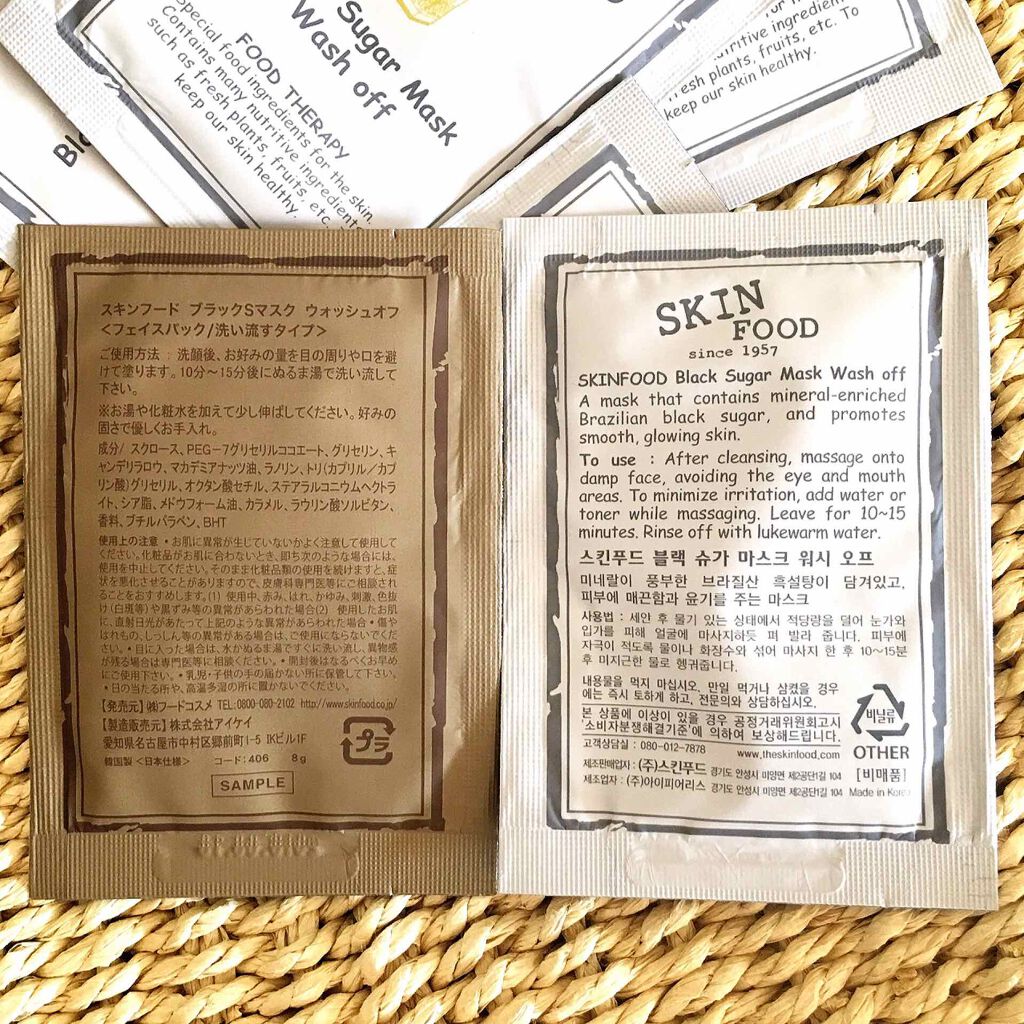 Sugar Mask
Wash off
FOOD THERAPY
Special food ingredients for the skin.
Contains many nutritive ingredients
such as fresh plants, fruits, etc.
keep our skin healthy.
nutritive ingredien
fresh plants, fruits, etc. To
keep our skin healthy.
スキンフード ブラックSマスク ウォッシュオフ
<フェイスパック/洗い流すタイプ>
ご使用方法 : 洗顔後、お好みの量を目の周りや口を避
けて塗ります。10分～15分後にぬるま湯で洗い流して
下さい。
※お湯や化粧水を加えて少し伸ばしてください。好みの
固さで優しくお手入れ。
成分/ スクロース、PEG-7グリセリルココエート、グリセリン、キ
ャンデリラロウ、マカデミアナッツ油、ラノリン、トリ(カプリル/カプ
リン酸)グリセリル、オクタン酸セチル、ステアラルコニウムヘクトラ
イト、シア脂、メドウフォーム油、カラメル、ラウリン酸ソルビタン、
香料、ブチルパラベン、BHT
使用上の注意 • お肌に異常が生じていないかよく注意して使用して
ください。化粧品がお肌に合わないとき、即ち次のような場合には、
使用を中止してください。そのまま化粧品類の使用を続けますと、症
状を悪化させることがありますので、皮膚科専門医等にご相談され
ることをおすすめします。(1) 使用中、赤み、はれ、かゆみ、刺激、色抜
け(白斑等)や黒ずみ等の異常があらわれた場合(2) 使用したお肌
に、直射日光があたって上記のような異常があらわれた場合 • 傷や
はれもの、しっしん等の異常がある場合は、ご使用にならないでくだ
さい。 • 目に入った場合は、水かぬるま湯ですぐに洗い流し、異物感
が残る場合は専門医等に相談ください。 • 開封後はなるべくお早め
にご使用下さい。 • 乳児・子供の手の届かない所に保管して下さい。
• 日の当たる所や、高温多湿の所に置かないでください。
【発売元】㈱フードコスメ TEL:0800-080-2102 http://www.skinfood.co.jp/
【製造販売元】株式会社アイケイ
愛知県名古屋市中村区郷前町1-5 IKビル1F
韓国製 <日本仕様> コード:406 8g
プラ
SAMPLE
SKIN
FOOD
since 1957
SKINFOOD Black Sugar Mask Wash off
A mask that contains mineral-enriched
Brazilian black sugar, and promotes
smooth, glowing skin.
To use : After cleansing, massage onto
damp face, avoiding the eye and mouth
areas. To minimize irritation, add water or
toner while massaging. Leave for 10~15
minutes. Rinse off with lukewarm water.
스킨푸드 블랙 슈가 마스크 워시 오프
미네랄이 풍부한 브라질산 흑설탕이 담겨있고,
피부에 매끈함과 윤기를 주는 마스크
사용법 : 세안 후 물기 있는 상태에서 적당량을 덜어 눈가와
입가를 피해 얼굴에 마사지하듯 펴 발라 줍니다. 피부에
자극이 적도록 물이나 화장수와 섞어 마사지 한 후 10~15분
후 미지근한 물로 헹궈줍니다.
내용물을 먹지 마십시오. 만일 먹거나 삼켰을 경우
에는 즉시 토하게 하고, 전문의와 상담하십시오.
본 상품에 이상이 있을 경우 공정거래위원회고시
'소비자분쟁해결기준'에 의하여 보상해드립니다.
고객상담실 : 080-012-7878 www.theskinfood.com
제조판매업자 : (주)스킨푸드 경기도 안성시 미양면 제2공단1길 104
제조업자 : (주)아이피어리스 경기도 안성시 미양면 제2공단1길 104
비닐류
OTHER
[비매품]
Made in Korea